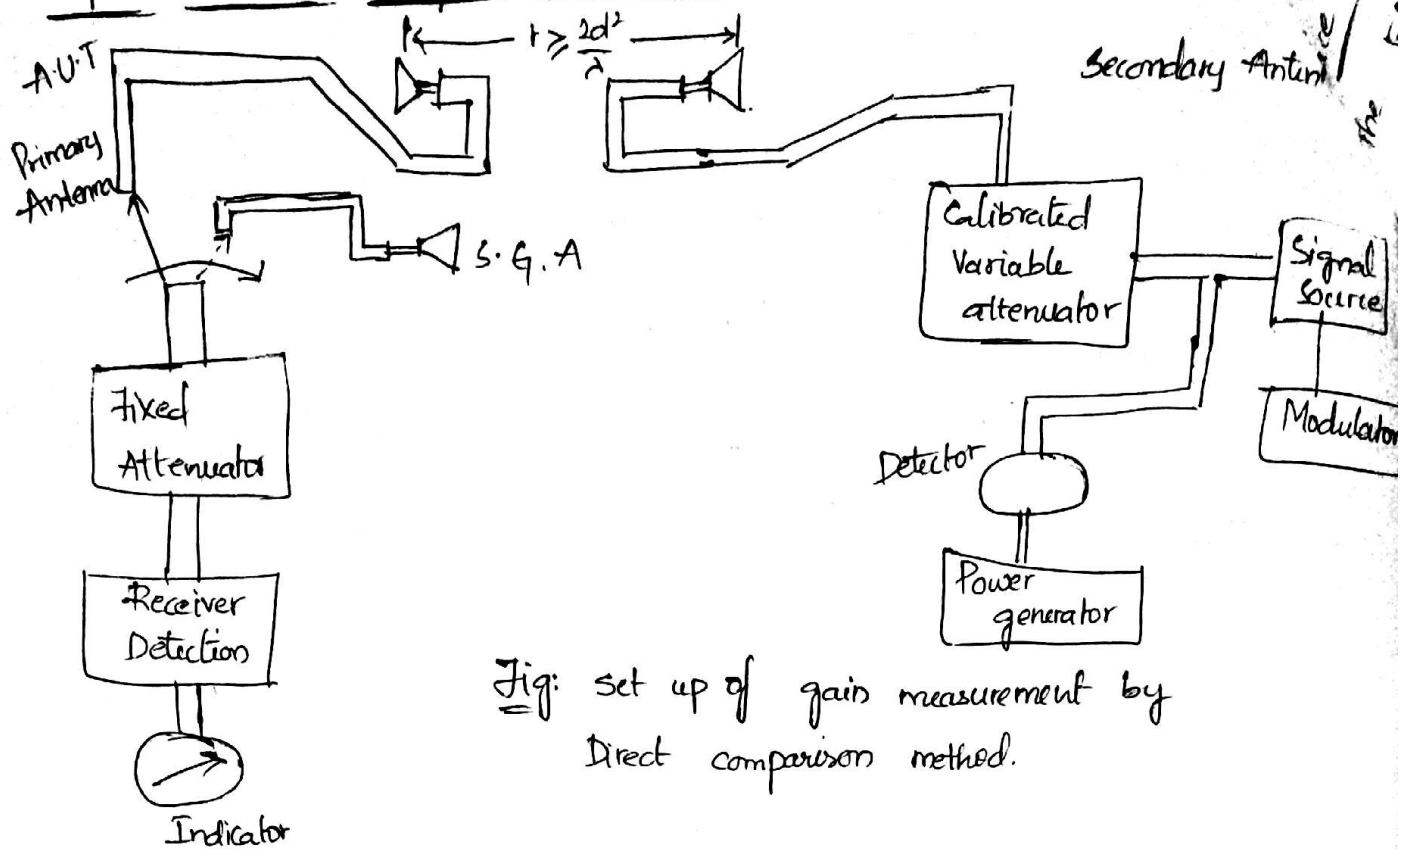 A.U.T
r ≥ 2d²/λ
Secondary Antenn
the
Primary
Antenna
S.G.A
Calibrated
Variable
attenuator
Signal
Source
Modulator
Fixed
Attenuator
Detector
Receiver
Detection
Power
generator
Indicator
Fig: set up of gain measurement by
Direct comparison method.